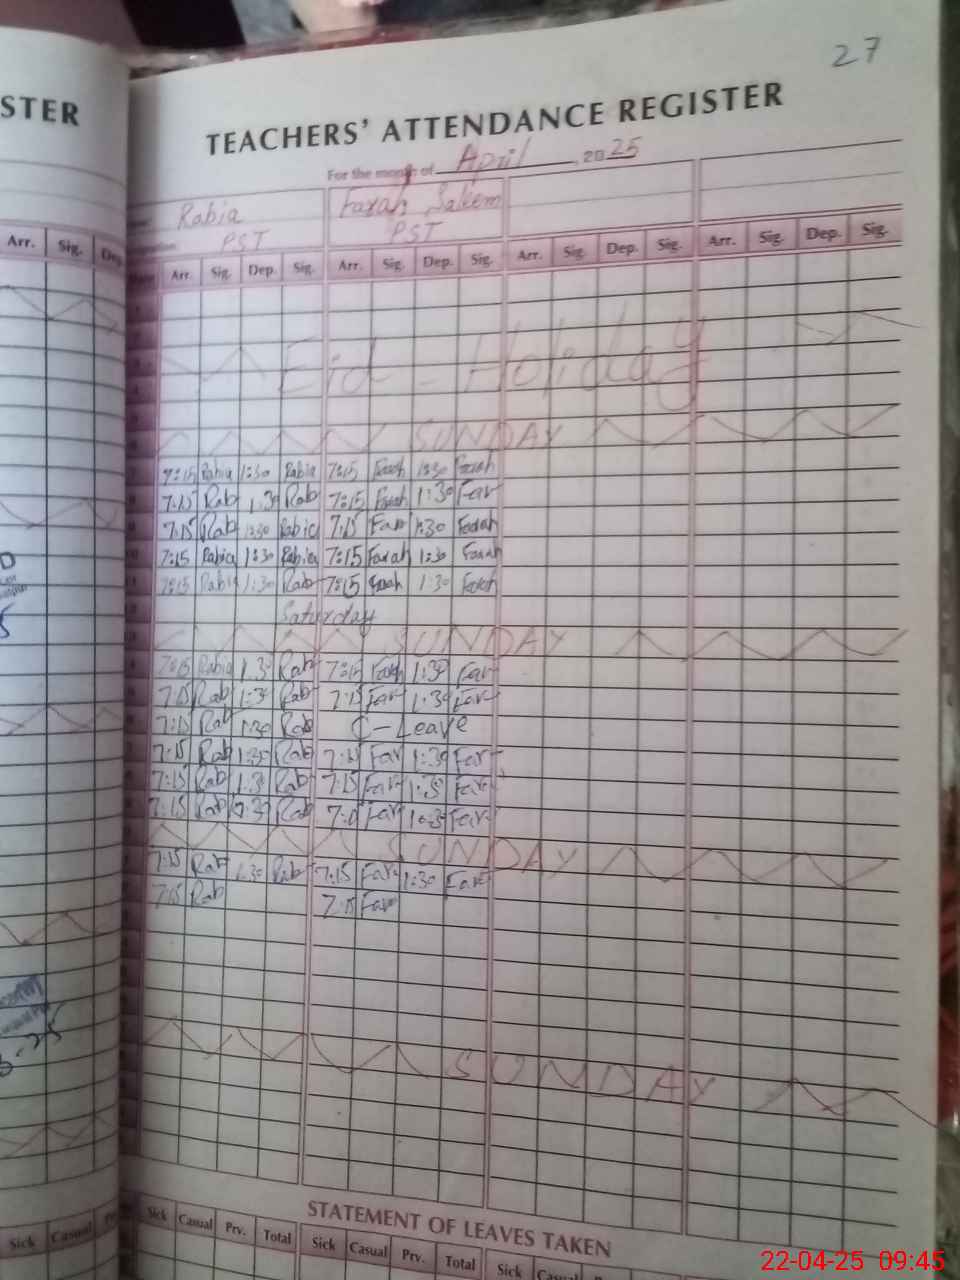 27
STER
TEACHERS' ATTENDANCE REGISTER
For the month of April, 2025
Rabia Farah Saleem
PST PST
Arr. Sig. Arr. Sig. Dep. Sig. Arr. Sig. Dep. Sig. Arr. Sig. Dep. Sig. Arr. Sig. Dep. Sig.
Eid - Holiday
SUNDAY
7:15 Rabia 1:30 Rabia 7:15 Farah 1:30 Farah
7:15 Rab 1:30 Rab 7:15 Farah 1:30 Far
7:15 Rab 1:30 Rabia 7:15 Far 1:30 Farah
7:15 Rabia 1:30 Rabia 7:15 Farah 1:30 Farah
7:15 Rabia 1:30 Rab 7:15 Farah 1:30 Farah
Saturday
SUNDAY
7:15 Rabia 1:30 Rab 7:15 Farah 1:30 Far
7:15 Rab 1:30 Rab 7:15 Far 1:30 Far
7:15 Rab 1:30 Rab C-Leave
7:15 Rab 1:30 Rab 7:15 Far 1:30 Far
7:15 Rab 1:30 Rab 7:15 Far 1:30 Far
7:15 Rab Rab Far Far
SUNDAY
7:15 Rab 1:30 Rab 7:15 Far 1:30 Far
7:15 Rab 7:15 Far
SUNDAY
STATEMENT OF LEAVES TAKEN
Sick Casual Sick Casual Prv. Total Sick Casual Prv. Total Sick
22-04-25 09:45